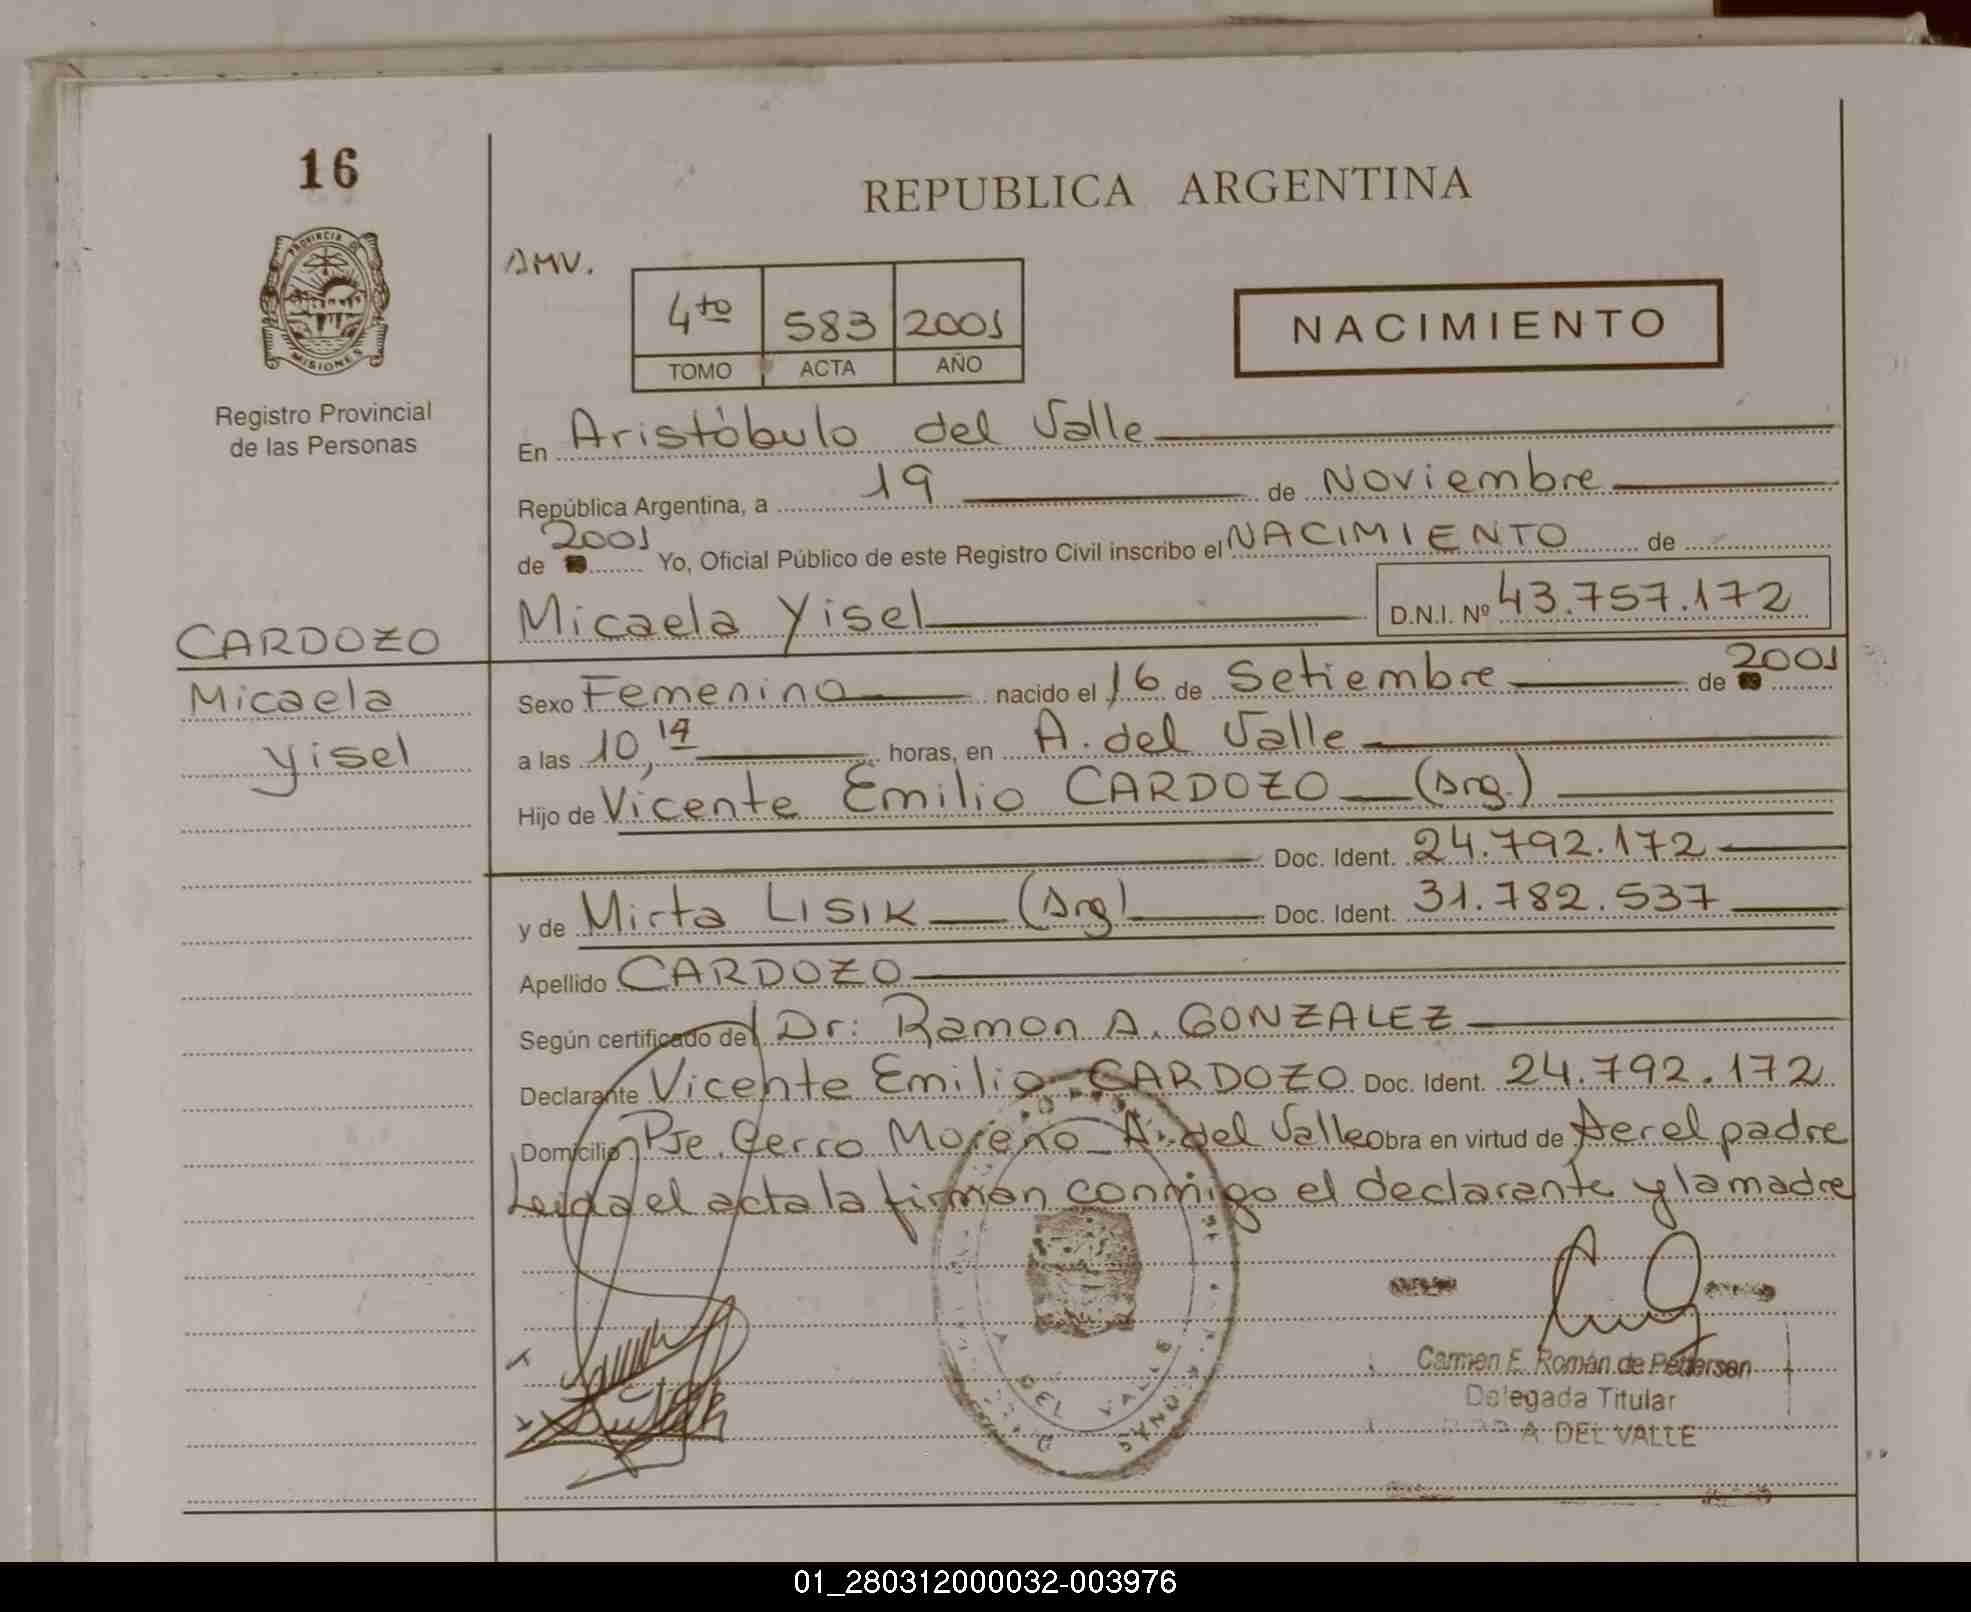 16
REPUBLICA ARGENTINA
PROVINCIA DE
MISIONES
Registro Provincial
de las Personas
AMV.
4to 583 2001
TOMO ACTA AÑO
NACIMIENTO
En Aristóbulo del Valle
República Argentina, a 19 de Noviembre
de 2001 Yo, Oficial Público de este Registro Civil inscribo el NACIMIENTO de
Micaela Yisel D.N.I. Nº 43.757.172
CARDOZO
Micaela
Yisel
Sexo Femenino nacido el 16 de Setiembre de 2001
a las 10,14 horas, en A. del Valle
Hijo de Vicente Emilio CARDOZO (Arg.)
Doc. Ident. 24.792.172
y de Mirta LISIK (Arg) Doc. Ident. 31.782.537
Apellido CARDOZO
Según certificado del Dr: Ramon A. GONZALEZ
Declarante Vicente Emilio CARDOZO Doc. Ident. 24.792.172
Domicilio Pje. Cerro Moreno A. del Valle Obra en virtud de Ser el padre
Leida el acta la firman conmigo el declarante y la madre
DEL VALLE
Carmen E. Román de Pettersen
Delegada Titular
A. DEL VALLE
01_280312000032-003976